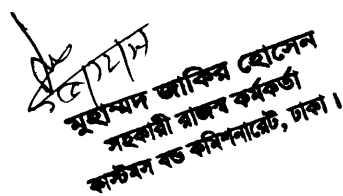 মুহাম্মদ জাকির হোসেন
সহকারী রাজস্ব কর্মকর্তা
কাস্টমস বন্ড কমিশনারেট, ঢাকা।